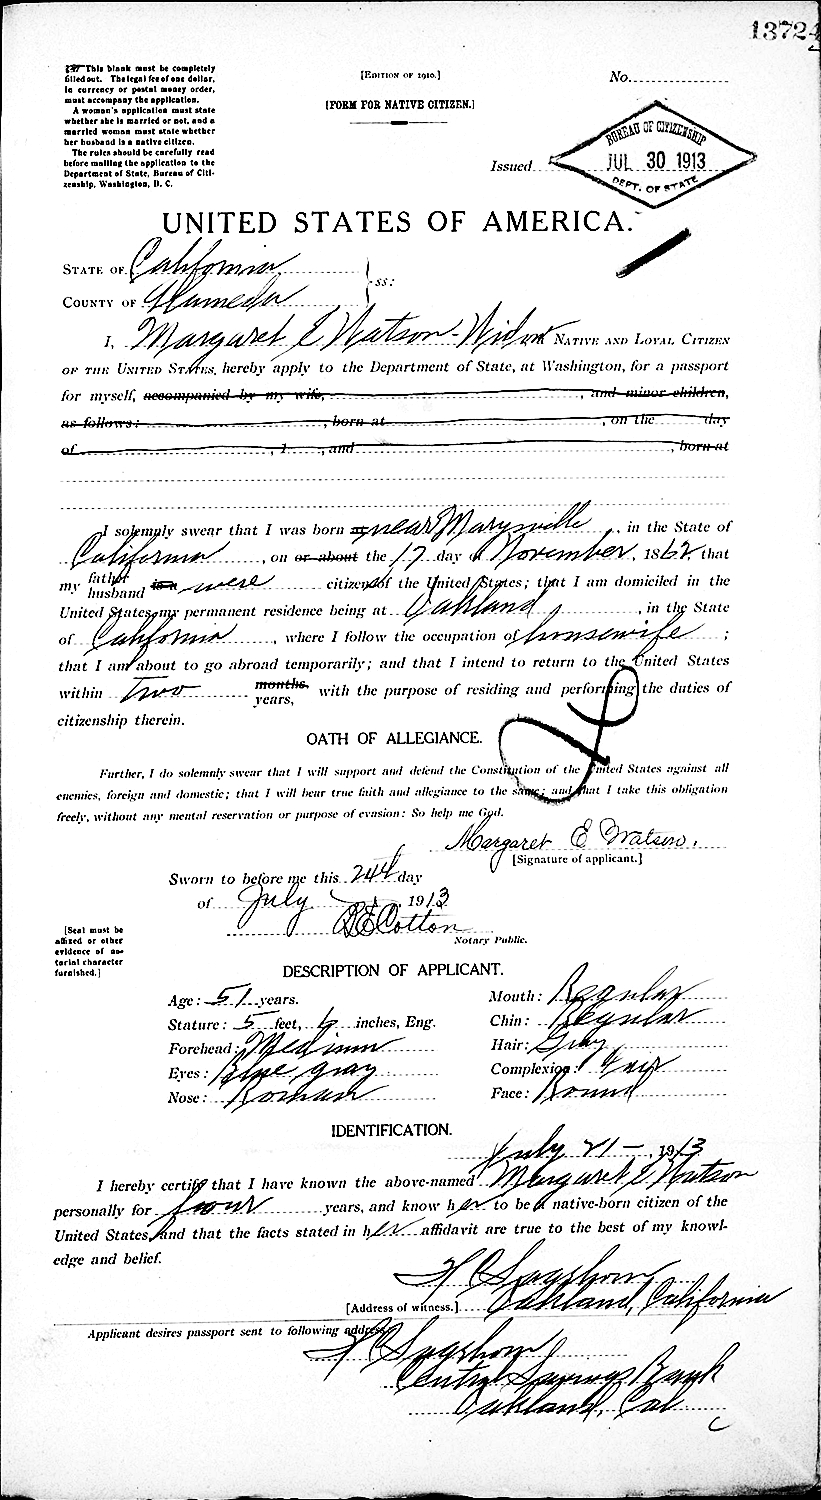 13724
☞ This blank must be completely
filled out. The legal fee of one dollar,
in currency or postal money order,
must accompany the application.
A woman's application must state
whether she is married or not, and a
married woman must state whether
her husband is a native citizen.
The rules should be carefully read
before mailing the application to the
Department of State, Bureau of Citi-
zenship, Washington, D. C.
[EDITION OF 1910.]
[FORM FOR NATIVE CITIZEN.]
No.
Issued
BUREAU OF CITIZENSHIP
JUL 30 1913
DEPT. OF STATE
UNITED STATES OF AMERICA.
STATE OF California
COUNTY OF Alameda
ss:
I, Margaret E Watson - Widow NATIVE AND LOYAL CITIZEN
OF THE UNITED STATES, hereby apply to the Department of State, at Washington, for a passport
for myself, accompanied by my wife, , and minor children,
as follows: , born at , on the day
of , 1 , and , born at
I solemnly swear that I was born at near Marysville, in the State of
California, on or about the 17 day of November, 1862, that
my father husband is a were citizens of the United States; that I am domiciled in the
United States, my permanent residence being at Oakland, in the State
of California, where I follow the occupation of housewife;
that I am about to go abroad temporarily; and that I intend to return to the United States
within two months. years, with the purpose of residing and performing the duties of
citizenship therein.
OATH OF ALLEGIANCE.
Further, I do solemnly swear that I will support and defend the Constitution of the United States against all
enemies, foreign and domestic; that I will bear true faith and allegiance to the same; and that I take this obligation
freely, without any mental reservation or purpose of evasion: So help me God.
Margaret E Watson.
[Signature of applicant.]
Sworn to before me this 24th day
of July, 1913
Cotton
Notary Public.
[Seal must be
affixed or other
evidence of no-
tarial character
furnished.]
DESCRIPTION OF APPLICANT.
Age: 51 years.
Stature: 5 feet, 6 inches, Eng.
Forehead: Medium
Eyes: Blue gray
Nose: Roman
Mouth: Regular
Chin: Regular
Hair: Gray
Complexion: Fair
Face: Round
IDENTIFICATION.
July 21 - 1913
I hereby certify that I have known the above-named Margaret E Watson
personally for four years, and know her to be a native-born citizen of the
United States, and that the facts stated in her affidavit are true to the best of my knowl-
edge and belief.
[Address of witness.] Oakland, California
Applicant desires passport sent to following address:
Central Savings Bank
Oakland, Cal